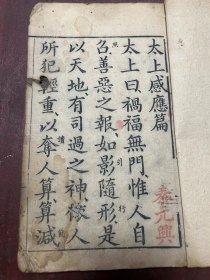 太上感應篇
太上曰禍福無門惟人自
召善惡之報如影隨形是
以天地有司過之神依人
所犯輕重以奪人算算減